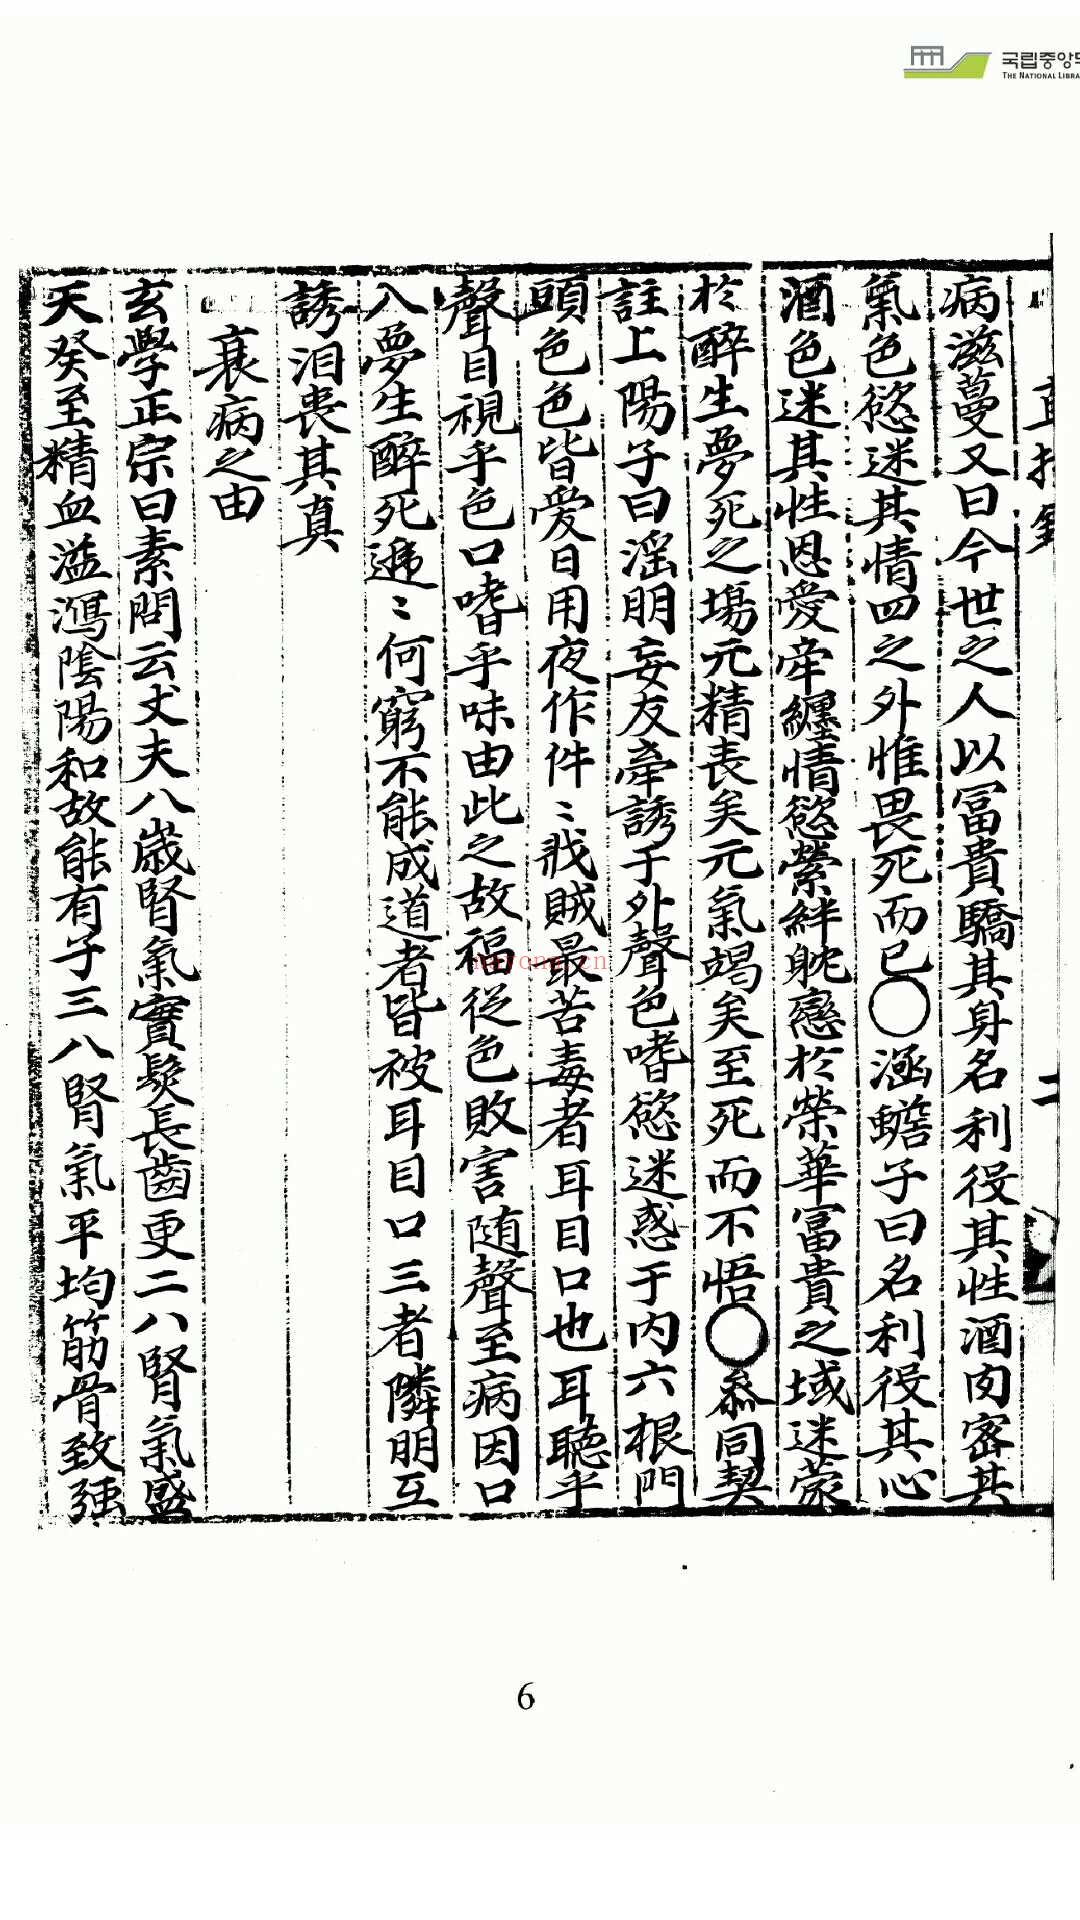 국립중앙도
THE NATIONAL LIBRA
病滋蔓又曰今世之人以冨貴驕其身名利役其性酒肉密其
氣色慾迷其情四之外惟畏死而已〇涵蟾子曰名利役其心
酒色迷其性恩愛牽纏情慾縈絆躭戀於榮華冨貴之域迷蒙
於醉生夢死之塲元精丧矣元氣竭矣至死而不悟〇叅同契
註上陽子曰滛朋妄友牽誘于外聲色嗜慾迷惑于内六根門
頭色色皆爱日用夜作件〻戕賊最苦毒者耳目口也耳聽乎
聲目視乎色口嗜乎味由此之故福従色敗害随聲至病因口
入夢生醉死逓〻何窮不能成道者皆被耳目口三者隣朋互
誘汩丧其真
衰病之由
玄學正宗曰素問云丈夫八嵗腎氣實髮長齒更二八腎氣盛
天癸至精血溢瀉陰陽和故能有子三八腎氣平均筋骨致强
nayona.cn
6